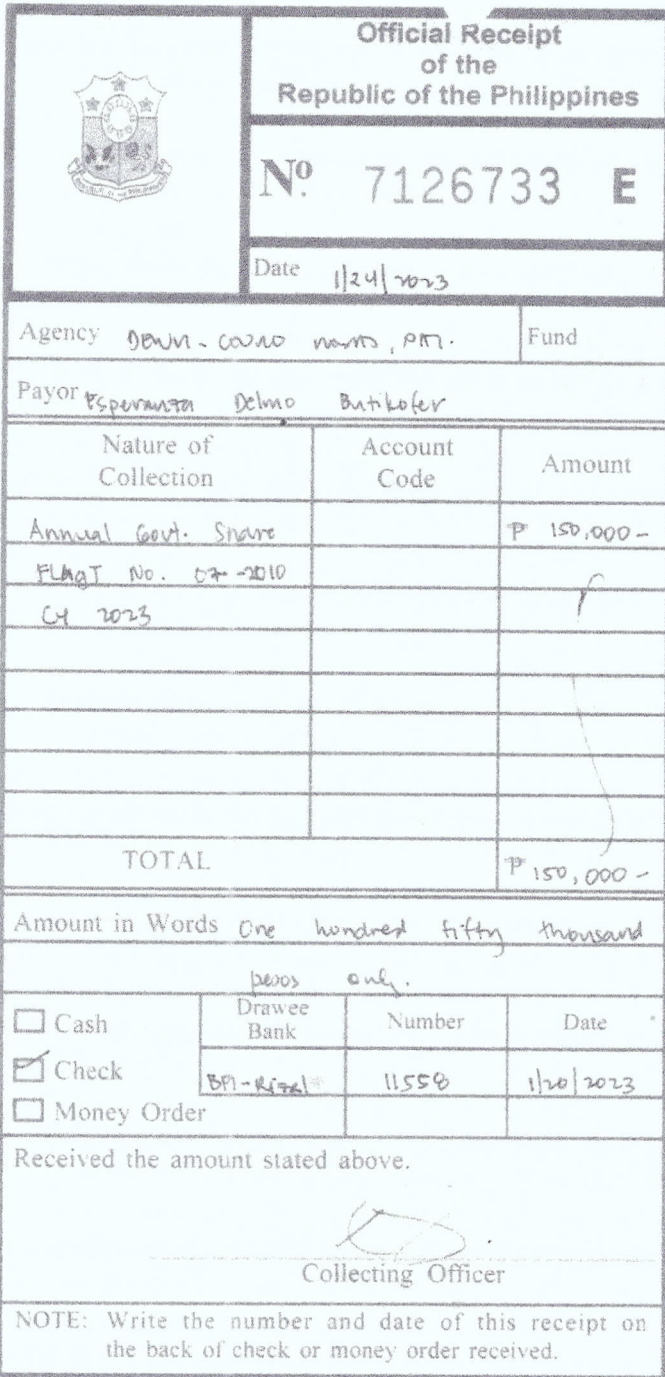 Official Receipt
of the
Republic of the Philippines
Nº 7126733 E
Date 1/24/2023
Agency DENR - CENRO
Fund
Payor Esperanza Delmo Butikofer
Nature of Collection
Account Code
Amount
Annual Govt. Share ₱ 150,000-
FLAgT No. 07-2010
CY 2023
TOTAL ₱ 150,000-
Amount in Words One hundred fifty thousand
pesos only.
Cash
Drawee Bank
Number
Date
Check BPI-Rizal 11558 1/20/2023
Money Order
Received the amount stated above.
Collecting Officer
NOTE: Write the number and date of this receipt on
the back of check or money order received.